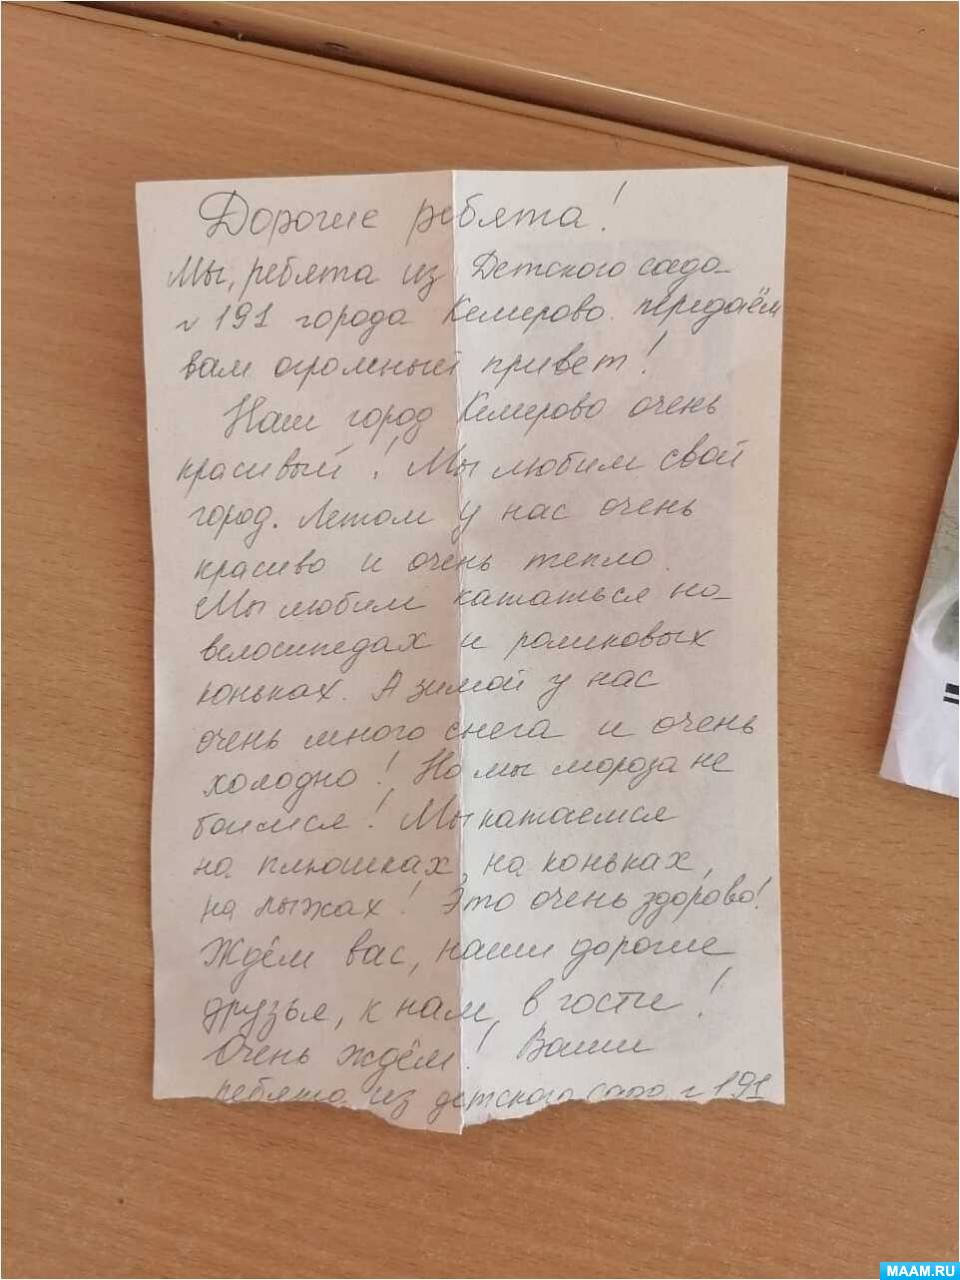 Дорогие ребята!
Мы, ребята из Детского сада
№ 191 города Кемерово. передаём
вам огромный привет!
Наш город Кемерово очень
красивый! Мы любим свой
город. Летом у нас очень
красиво и очень тепло.
Мы любим кататься на
велосипедах и роликовых
коньках. А зимой у нас
очень много снега и очень
холодно! Но мы мороза не
боимся! Мы катаемся
на плюшках, на коньках,
на лыжах! Это очень здорово!
Ждём вас, наши дорогие
друзья, к нам в гости!
Очень ждём! Ваши
ребята из детского сада № 191
MAAM.RU